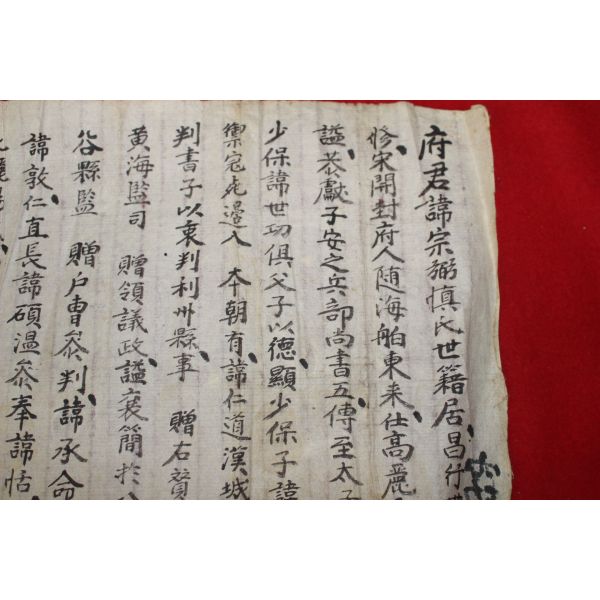 府君諱宗弼愼氏世籍居昌
修宋開封府人随海舶東来仕髙麗
謚恭獻子安之兵部尚書五傳至太子
少保諱世功俱父子以德顯少保子諱
禦寇死邊入 本朝有諱仁道漢城
判書子以衷判利州縣事 贈右贊
黄海監司 贈領議政謚襄簡於
谷縣監 贈户曹叅判諱承命
諱敦仁直長諱碩温叅奉諱恬